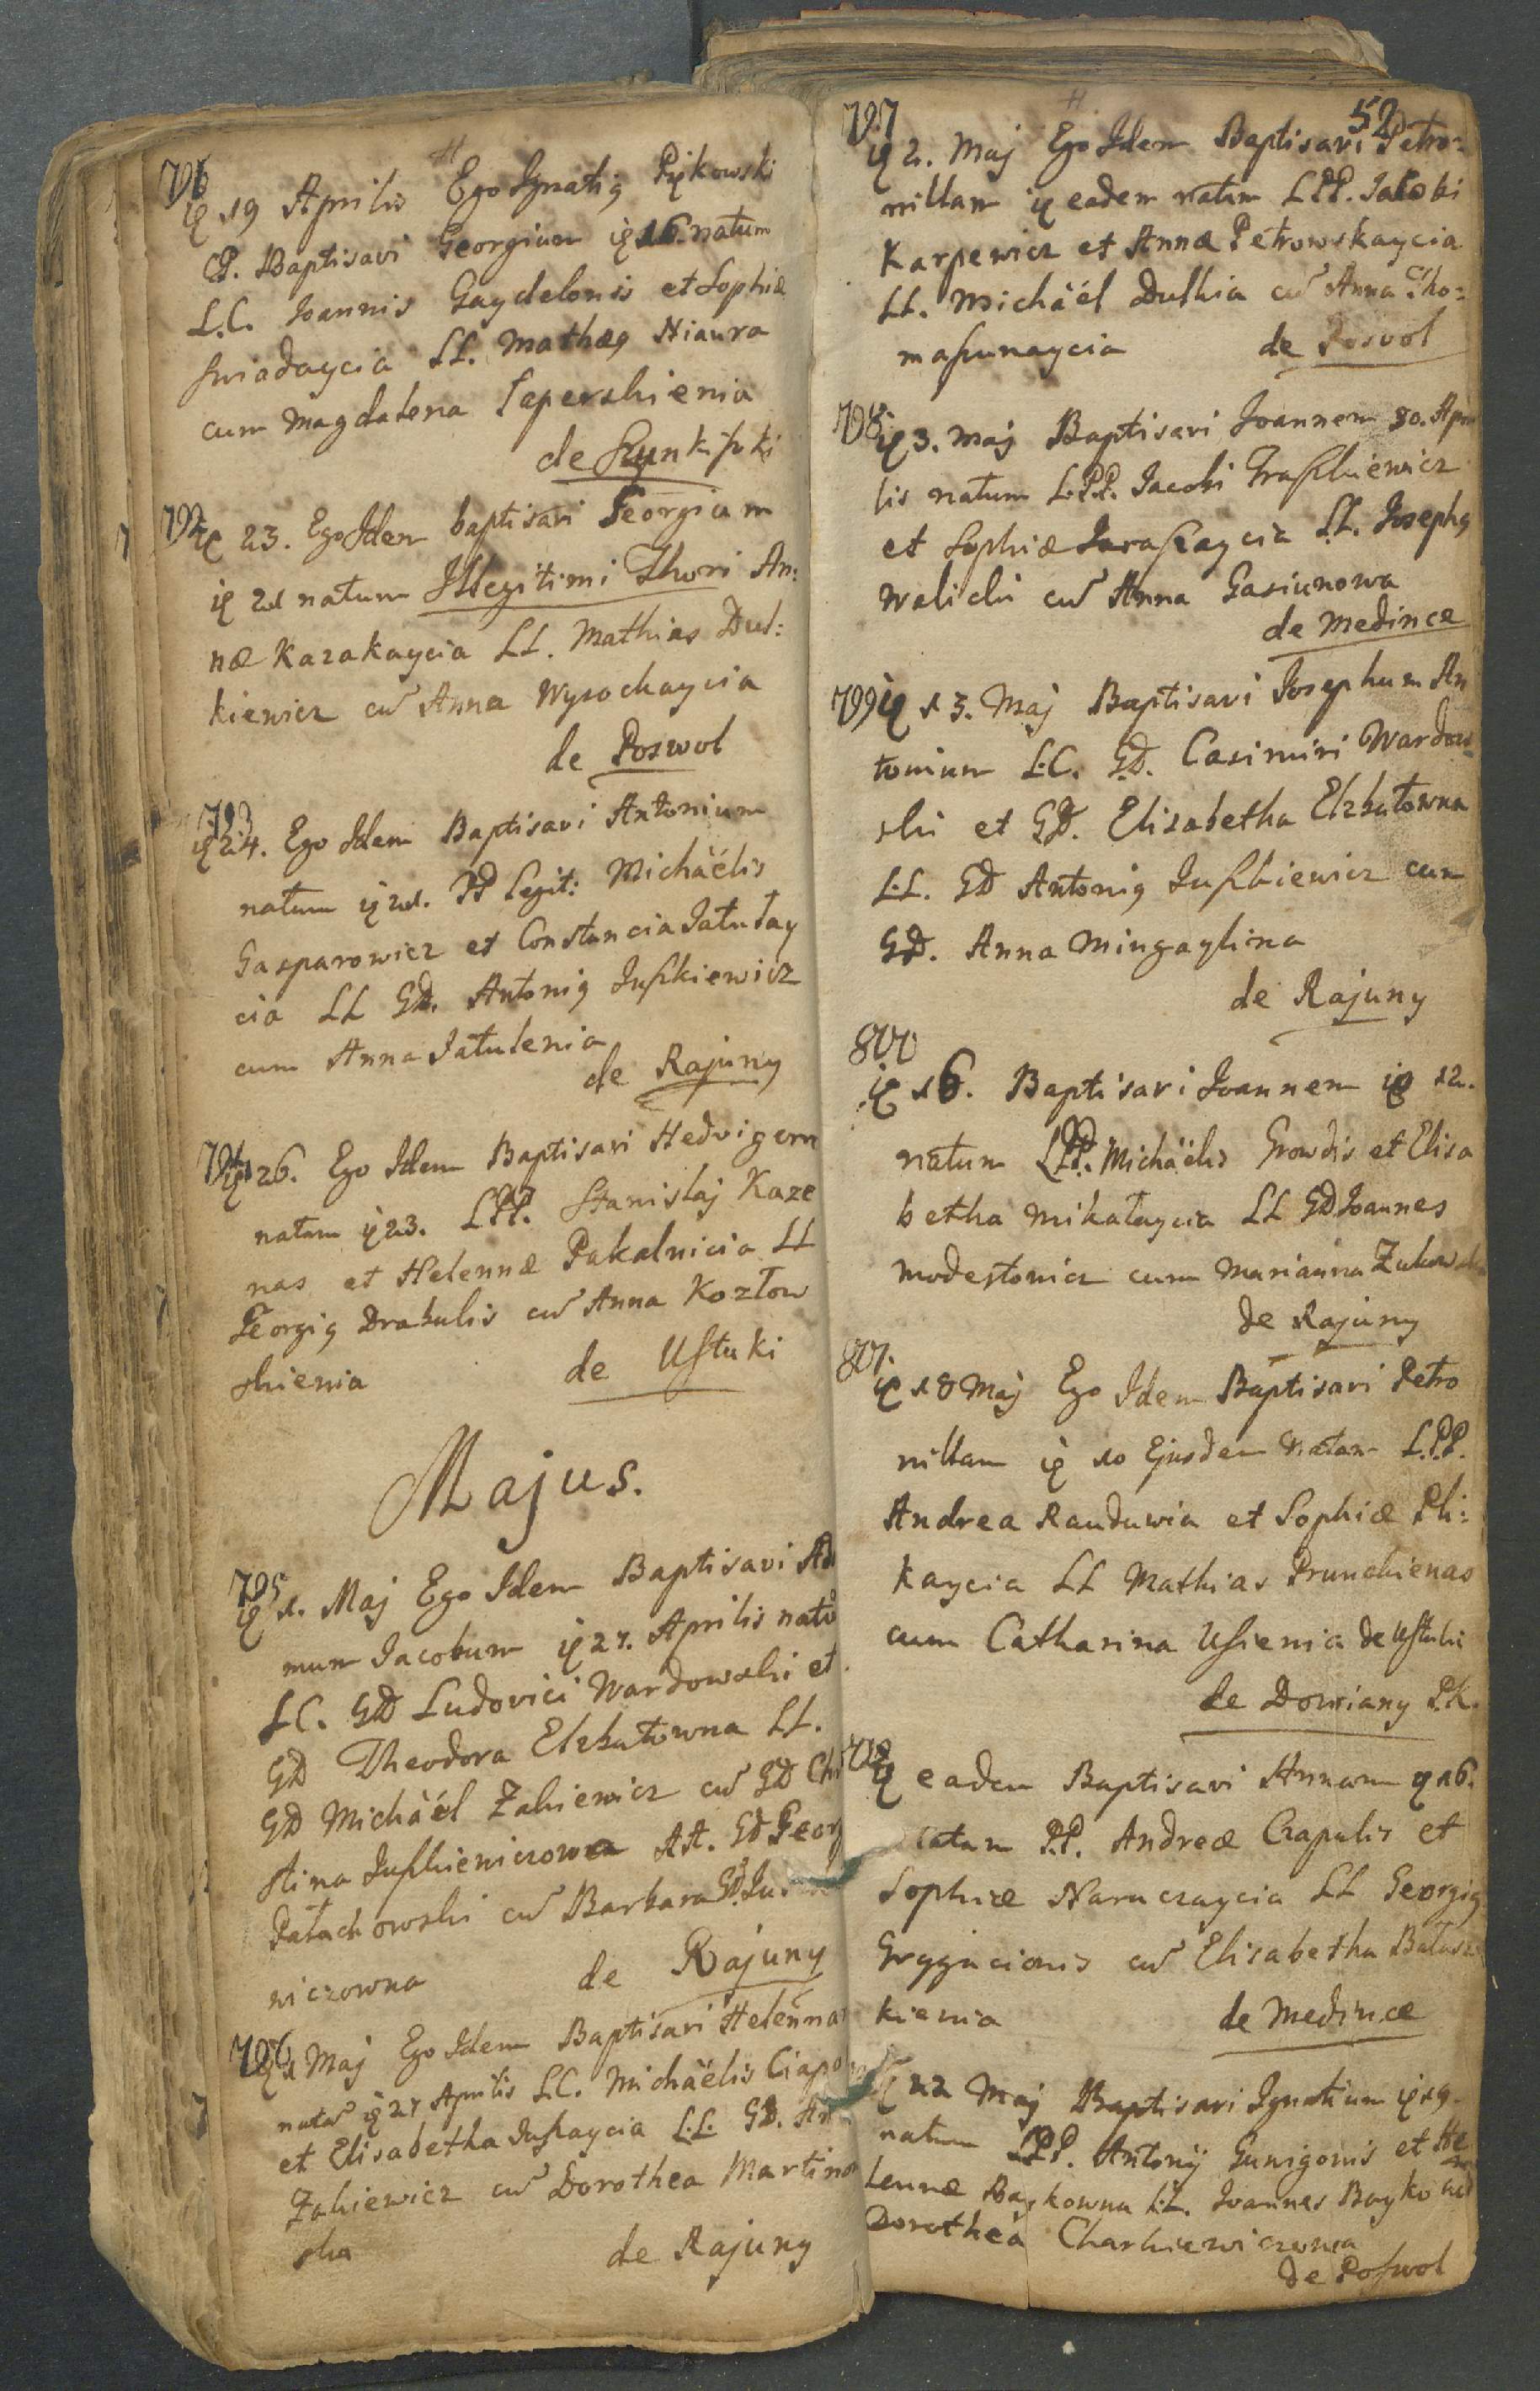 791
19 Aprilis Ego Ignatiq Pikowski
CP. Baptisavi Georgium 16. natum
L.C. Joannis Gaydelonis et Sophiæ
Swiadaycia LL. Mathæq Niaura
cum Magdalena Sapershienia
792
23. Ego Idem baptisavi Georgium
21 natum Illegitimi Thori An:
næ Kazakaycia LL. Mathias Dul:
kiewicz cu Anna Wysockaycia
de Poswol
793
24. Ego Idem Baptisavi Antonium
natum 21. PP Legit: Michäelis
Gasparowicz et Constancia Jatulay
cia LL GD. Antoniq Juszkiewicz
cum Anna Jatulenia
de Rajuny
794
26. Ego Idem Baptisavi Hedvigem
natam 23. LPP. Stanislaj Kaze
nas et Helennæ Pakalnicia LL
Georgiq Drakulis cu Anna Kozłow
skienia de Ustuki
Majus.
795
1. Maj Ego Idem Baptisavi Ada
mum Jacobum 27. Aprilis natu
LC. GD Ludovici Wardowski et
GD Theodora Elzbutowna LL.
GD Michäel Zabiewicz cu GD Chri
stina Juszkiewiczowa AA. GD Georg
Pałachowski cu Barbara GD. Jus
wiczowna de Rajuny
796
1 Maj Ego Idem Baptisavi Helennam
nata 27 Aprilis LC. Michäelis Ciapo
et Elisabetha Juszaycia LL. GD. An
Zabiewicz cu Dorothea Martino
ska de Rajuny
52
797
2. Maj Ego Idem Baptisavi Petro=
nillam eadem natam LPP. Jacobi
Karpewicz et Annæ Petrowskaycia
LL. Michäel Dulkia cu Anna Tho=
maszunaycia de Posvol
798
3. Maj Baptisavi Joannem 30. Apri
lis natum L.PP. Jacobi Traszkiewicz
et Sophiæ Juraszaycia LL. Josephq
Walicki cu Anna Gasiunowa
de Medince
799
13. Maj Baptisavi Josephum An
tonium L.C. GD. Casimiri Wardow=
ski et GD. Elisabetha Elzbutowna
L.L. GD Antoniq Juszkiewicz cum
GD. Anna Mingaylina
de Rajuny
800
16. Baptisavi Joannem 12.
natum LPP. Michäelis Growdis et Elisa
betha Mikałaycia LL GD Joannes
Modestowicz cum Marianna Zukowska
de Rajuny
801.
18 Maj Ego Idem Baptisavi Petro
nillam 10 Ejusdem natam L.PP.
Andrea Rauduwia et Sophiæ Pli:
kaycia LL Mathias Prunckienas
cum Catharina Uszienia de Ustuki
de Dowiany P.K.
802
eadem Baptisavi Annam 16.
natam P.P. Andreæ Czapulis et
Sophiæ Naruczaycia LL Georgiq
Grygucionis cu Elisabetha Bałasz
kienia de Medince
22 Maj Baptisavi Ignatium 19.
natum LPP. Antonij Gunigonis et He
lennæ Baykowna LL. Joannes Bayko cu
Dorothea Charkiewiczowna
de Poswol